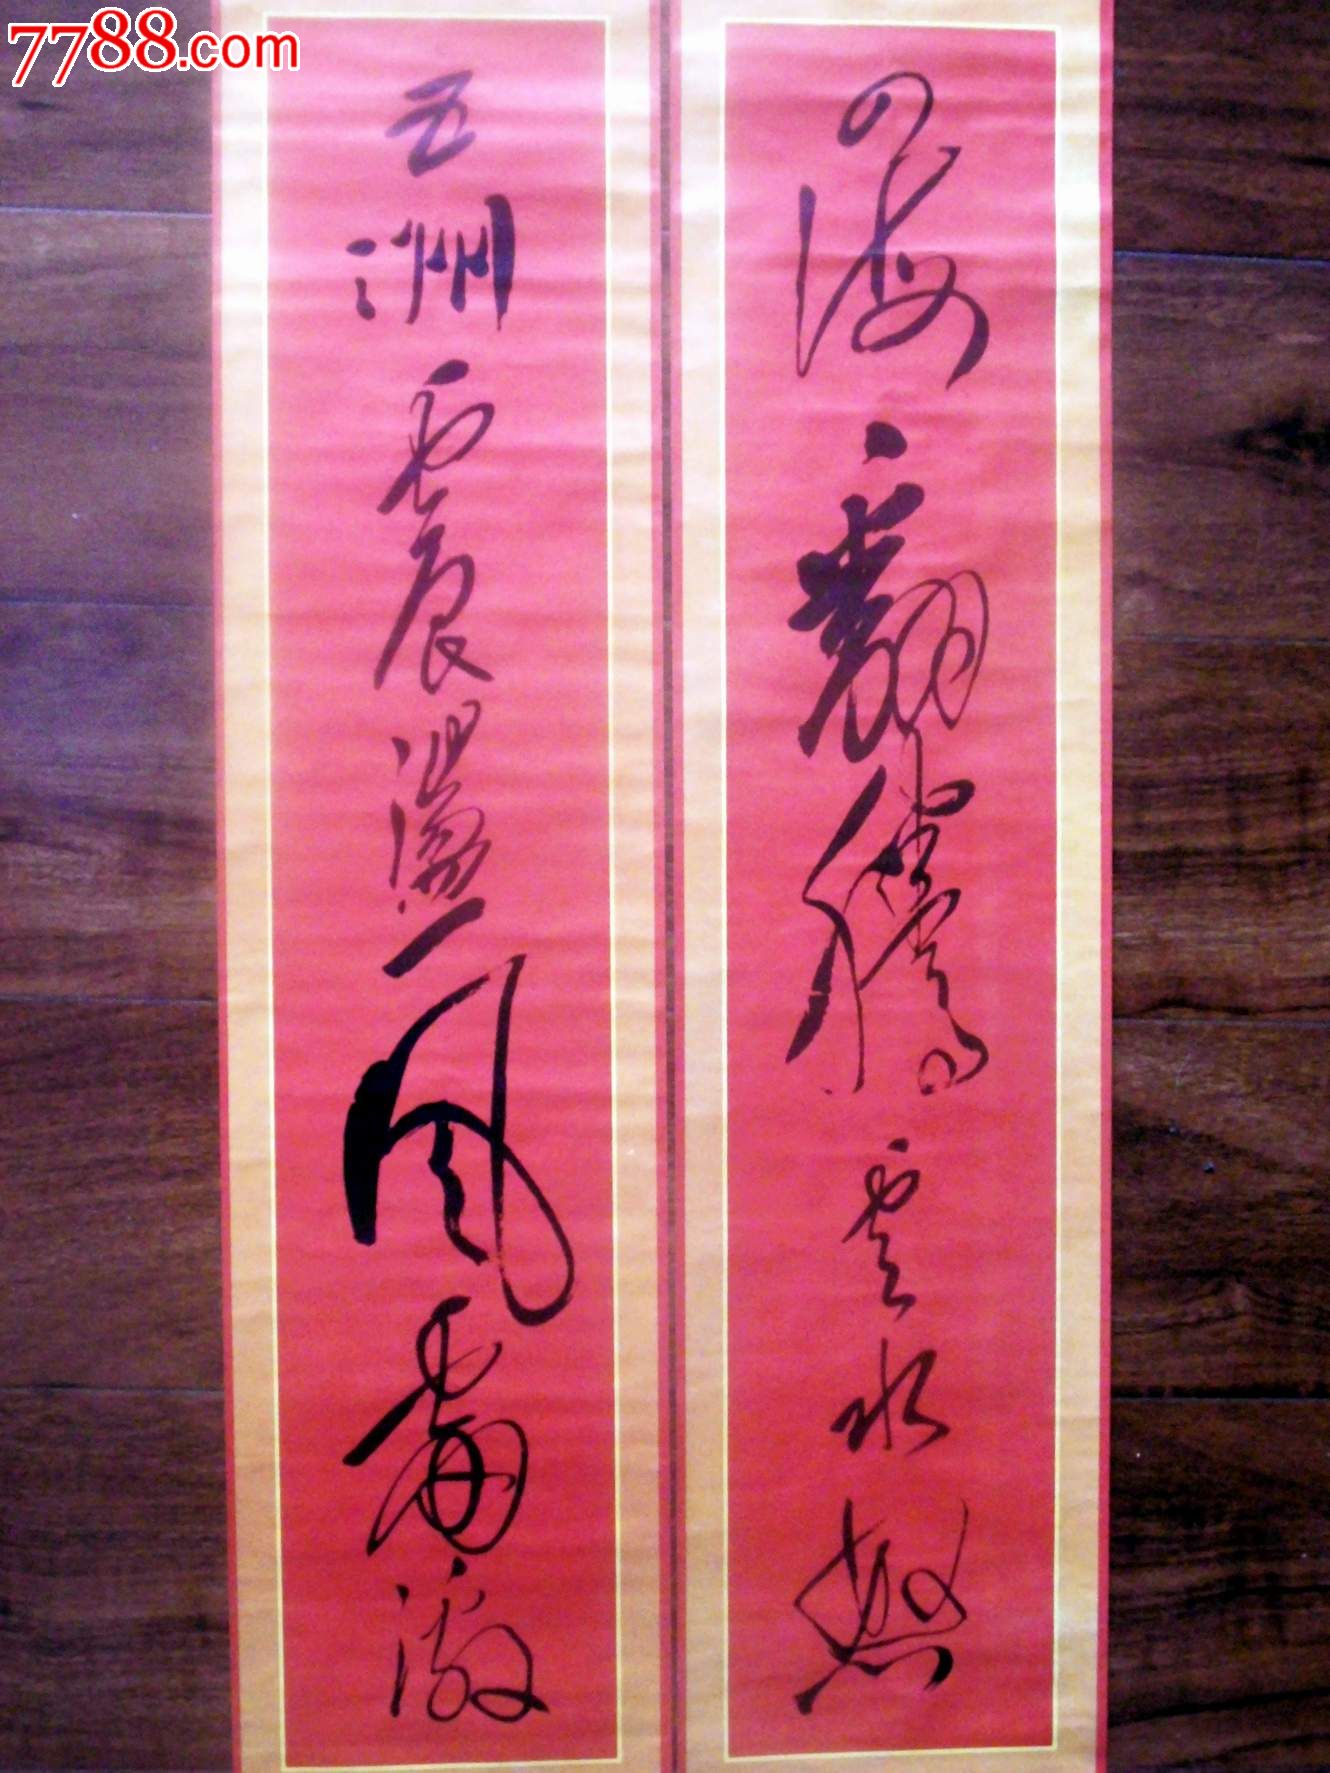 7788.com
四海翻騰雲水怒
五洲震盪風雷激